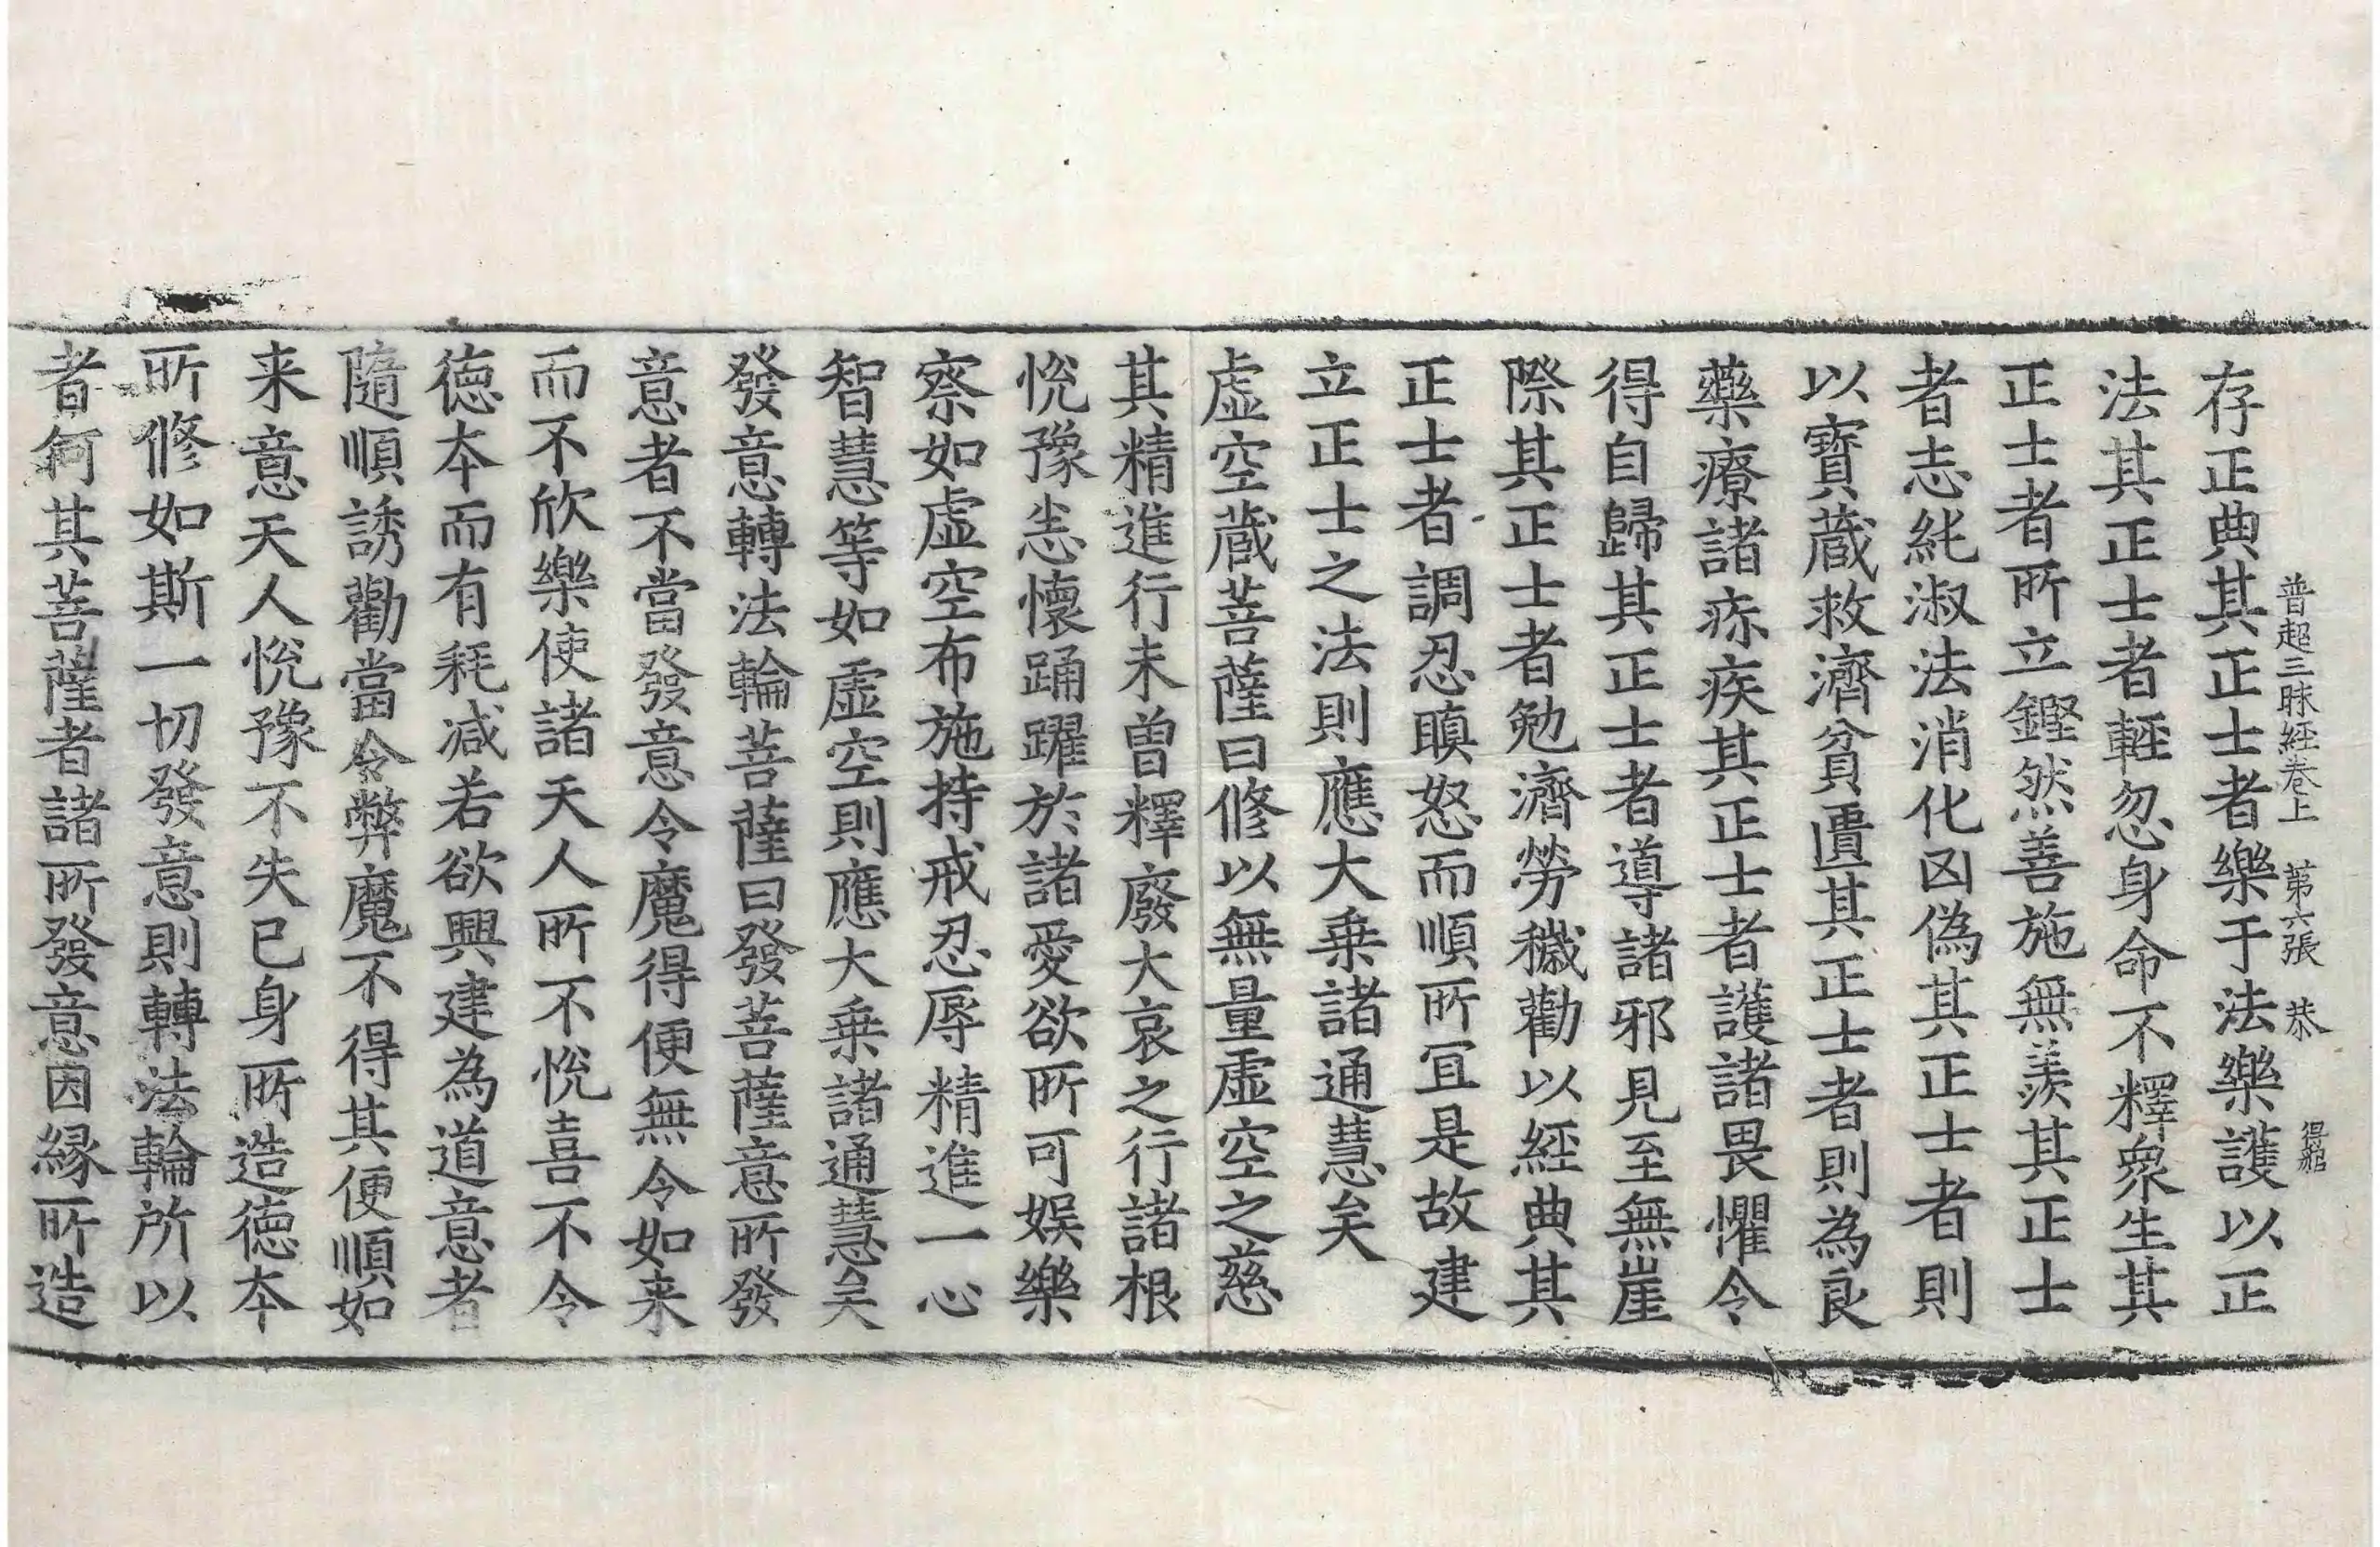 普超三昧經卷上 第六張 恭
存正典其正士者樂于法樂護以正
法其正士者輕忽身命不釋衆生其
正士者所立鏗然善施無羨其正士
者志純淑法消化凶偽其正士者則
以寶蔵救濟貧匱其正士者則為良
藥療諸疹疾其正士者護諸畏懼令
得自歸其正士者導諸邪見至無崖
際其正士者勉濟勞穢勸以經典其
正士者調忍瞋怒而順所宜是故建
立正士之法則應大乗諸通慧矣
虛空蔵菩薩曰修以無量虛空之慈
其精進行未曽釋廢大哀之行諸根
恱豫恙懷踊躍於諸愛欲所可娱樂
察如虛空布施持戒忍辱精進一心
智慧等如虛空則應大乗諸通慧矣
發意轉法輪菩薩曰發菩薩意所發
意者不當發意令魔得便無令如来
而不欣樂使諸天人所不恱喜不令
德夲而有耗减若欲興建為道意者
隨順誘勸當令弊魔不得其便順如
来意天人恱豫不失已身所造德夲
所修如斯一切發意則轉法輪所以
者何其菩薩者諸所發意因縁所造